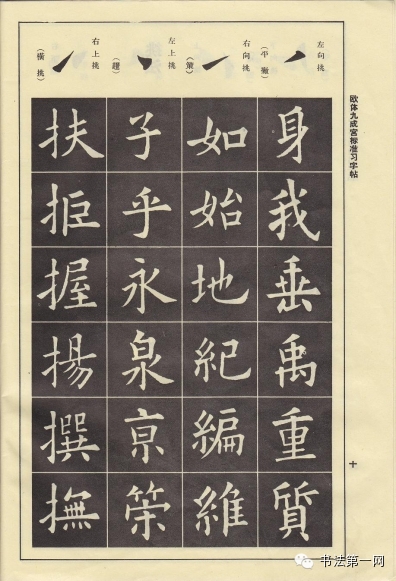 欧体九成宫标准习字帖
十
左向挑
（平撇）
身我垂禹重質
右向挑
（策）
如始地紀編維
左上挑
（趯）
子乎永泉亰策
右上挑
（橫挑）
扶拒握揚撰撫
书法第一网